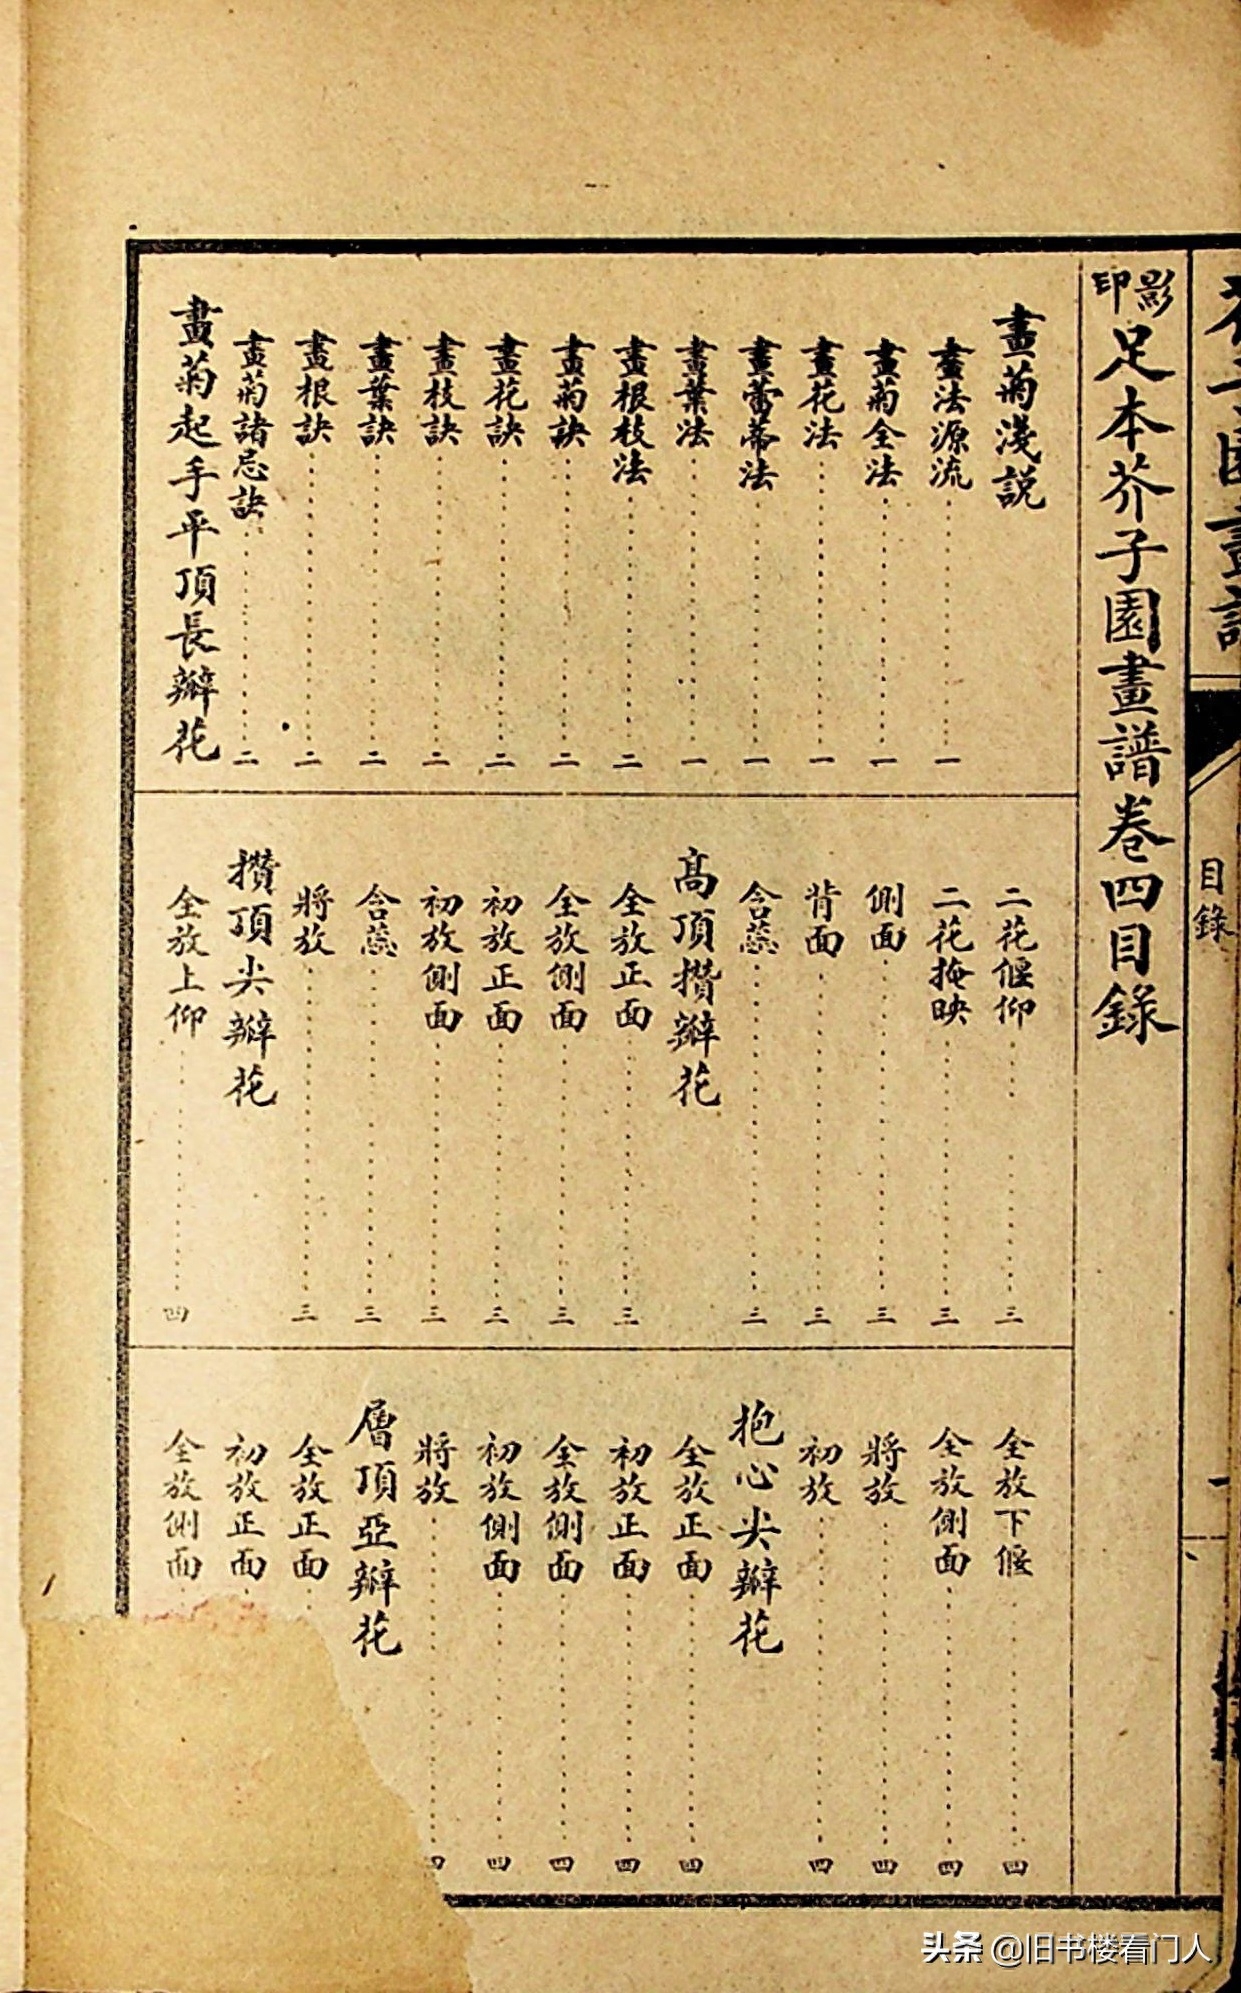 影印足本芥子園畫譜卷四目錄
畫菊淺説
畫法源流 一
畫菊全法 一
畫花法 一
畫蕾蒂法 一
畫葉法 一
畫根枝法 二
畫菊訣 二
畫花訣 二
畫枝訣 二
畫葉訣 二
畫根訣 二
畫菊諸忌訣 二
畫菊起手平頂長瓣花
二花偃仰 三
二花掩映 三
側面 三
背面 三
含蕊 三
高頂攢瓣花
全放正面 三
全放側面 三
初放正面 三
初放側面 三
含蕊 三
將放 三
攢頂尖瓣花
全放上仰 四
全放下偃 四
全放側面 四
將放 四
初放 四
抱心尖瓣花
全放正面 四
初放正面 四
全放側面 四
初放側面 四
將放 四
層頂亞瓣花
全放正面
初放正面
全放側面
目錄
头条 @旧书楼看门人